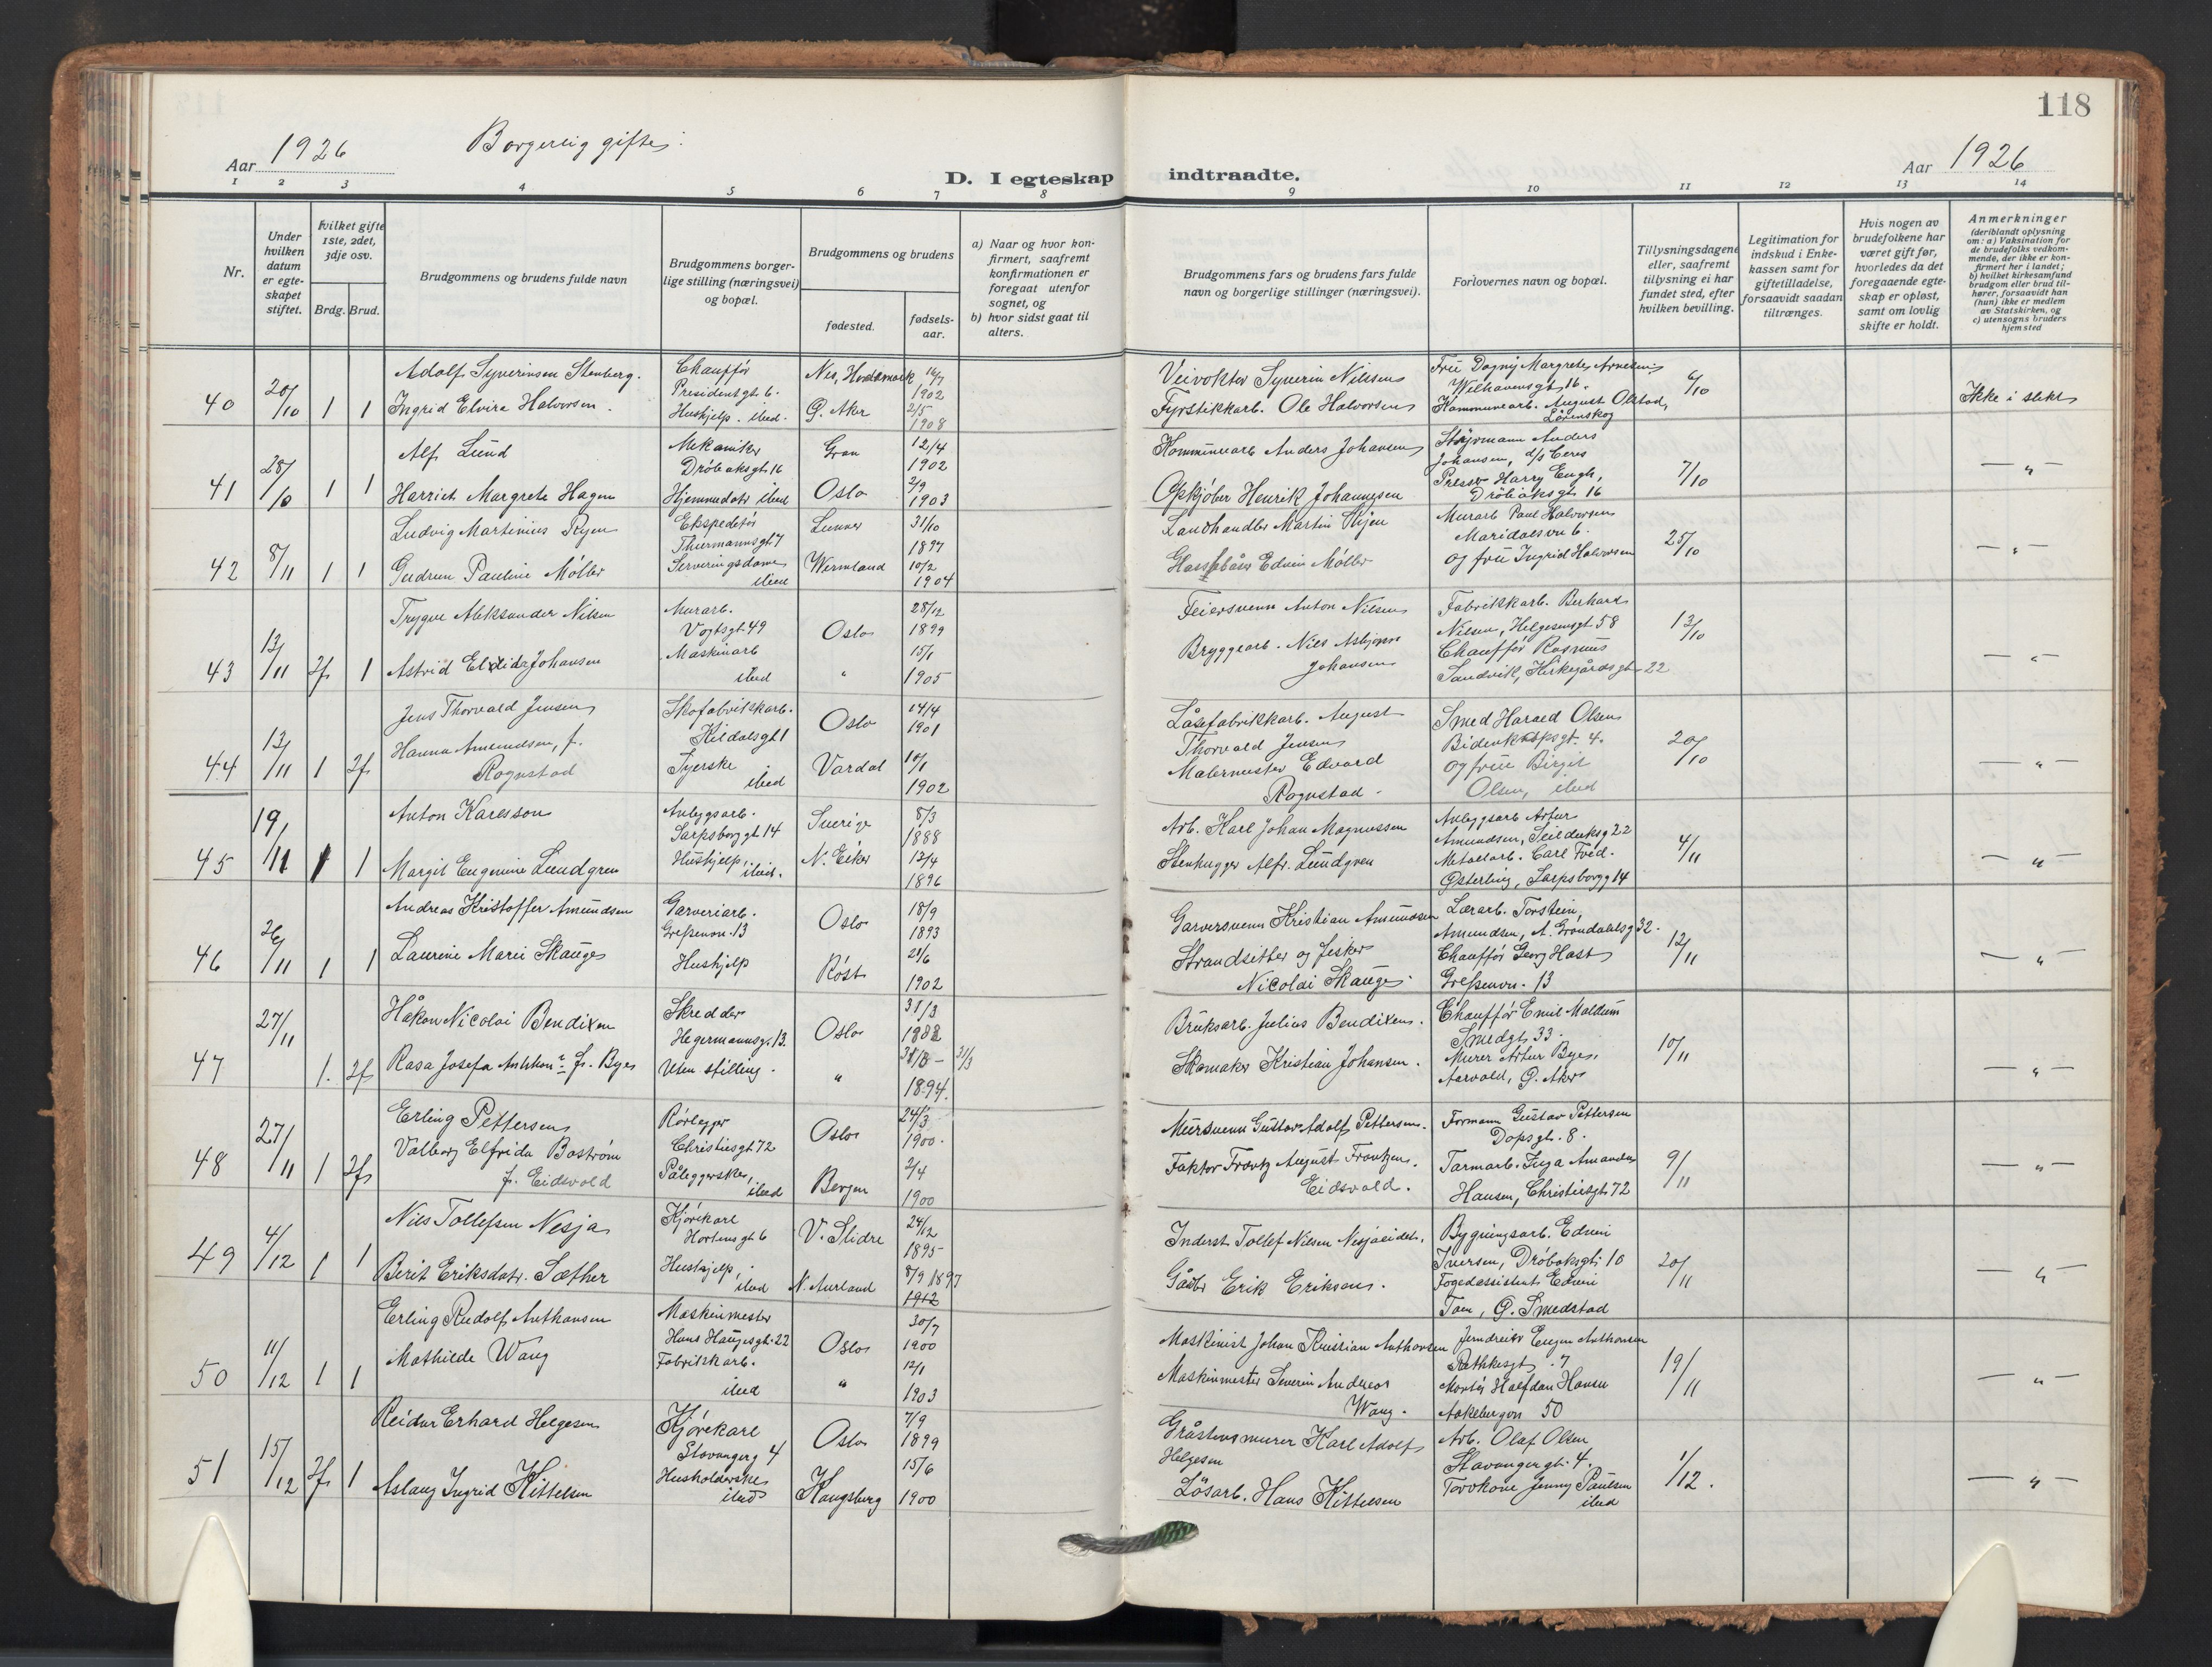 118
Aar 1926
Borgerlig gifte.
D. I egteskap indtraadte.
Aar 1926
1 2 3 4 5 6 7 8 9 10 11 12 13 14
Nr.
Under hvilken datum er egteskapet stiftet.
Hvilket gifte 1ste, 2det, 3dje osv.
Brdg. Brud.
Brudgommens og brudens fulde navn
Brudgommens borgerlige stilling (næringsvei) og bopæl.
Brudgommens og brudens
fødested.
fødselsaar.
a) Naar og hvor konfirmert, saafremt konfirmationen er foregaat utenfor sognet, og
b) hvor sidst gaat til alters.
Brudgommens fars og brudens fars fulde navn og borgerlige stillinger (næringsvei).
Forlovernes navn og bopæl.
Tillysningsdagene eller, saafremt tillysning ei har fundet sted, efter hvilken bevilling.
Legitimation for indskud i Enkekassen samt for giftetilladelse, forsaavidt saadan tiltrænges.
Hvis nogen av brudefolkene har været gift før, hvorledes da det foregaaende egteskap er opløst, samt om lovlig skifte er holdt.
Anmerkninger
(deriblandt oplysning om: a) Vaksination for de brudefolks vedkommende, der ikke er konfirmert her i landet; b) hvilket kirkesamfund brudgom eller brud tilhører, forsaavidt han (hun) ikke er medlem av Statskirken, og c) utensogns bruders hjemsted
40 20/10 1 1
Adolf Syverinsen Stenberg.
Ingrid Elvira Halvorsen.
Chauffør
Presidentgt. 6.
Hushjelp. ibid.
Nes, Hedemark 16/7 1902
Ø. Aker 2/5 1908
Veivokter Syverin Nilssen
Fyrstikkarb. Ole Halvorsen
Frue Dagny Margrete Arnesen
Welhavensgt. 16.
Kommunearb. August Olstad,
Lørenskog
6/10
Ikke i slekt
41 28/10 1 1
Alf Lund
Harriet Margrete Hagen
Mekaniker
Drøbaksgt. 16
Hjemmedatr ibid
Gran 12/4 1902
Oslo 2/9 1903
Kommunearb Anders Johansen
Opkjøber Henrik Johannesen
Styrmann Anders
Johansen, d/s Ceres
Presser Harry Engh,
Drøbaksgt. 16
7/10
— " —
42 8/11 1 1
Ludvig Martinius Ryen
Gudrun Pauline Möller
Ekspeditør
Thurmannsgt 7
Serveringsdame
ibid
Lunner 31/10 1897
Wermland 10/2 1904
Landhandler Martin Ryen
Edvin Möller
Murarb Paul Halvorsen
Maridalsvn 6.
og frue Ingrid Halvorsen
25/10
— " —
43 13/11 2f 1
Trygve Aleksander Nilsen
Astrid Elida Johansen
Murarb.
Vogtsgt. 49
Maskinarb
ibid
Oslo 28/12 1899
" 15/1 1905
Feiersvenn Anton Nilsen
Bryggearb. Nils Asbjørn
Johansen
Fabrikkarb. Berhard
Nilsen, Helgesensgt 58
Chauffør Rasmus
Sandvik, Kirkegårdsgt 22
13/10
— " —
44 13/11 1 2f
Jens Thorvald Jensen
Hanna Amundsen, f.
Rognstad
Skofabrikkarb.
Kildalsgt 1
Syerske
ibid
Oslo 14/4 1901
Vardal 10/1 1902
Låsefabrikkarb. August
Thorvald Jensen
Malermester Edvard
Rognstad.
Smed Harald Olsen
Bidenkapsgt. 4.
og frue Birgit
Olsen, ibid
20/10
— " —
45 19/11 1 1
Anton Karlsson
Margit Eugenie Lundgren
Anleggsarb.
Sarpsborggt 14
Hushjelp, ibid.
Sverige 8/3 1888
N. Eiker 12/4 1896
Arb. Karl Johan Magnussen
Stenhugger Alfr. Lundgren
Anleggsarb Artur
Amundsen, Seilduksg 22
Metallarb. Carl Fred.
Østerling, Sarpsborgg 14
4/11
— " —
46 26/11 1 1
Andreas Kristoffer Amundsen
Laurine Marie Skauge
Garveriarb.
Grefsenvn. 13
Hushjelp
Oslo 18/9 1893
Røst 21/6 1902
Garversvenn Kristian Amundsen
Strandsitter og fisker
Nicolai Skauge.
Lærarb. Torstein
Amundsen, A. Grøndalsg 32.
Chauffør Georg Hast
Grefsenvn. 13
12/11
— " —
47 27/11 1. 2f
Håkon Nicolai Bendixen
Rasa Josefa f. Bye
Skredder
Hegermannsg. 13.
Uten stilling.
Oslo 31/3 1882
" 31/3 1894.
Bruksarb. Julius Bendixen.
Skomaker Kristian Johansen.
Chauffør Emil Maldum
Smedgt. 33.
Murer Artur Bye,
Aarvold, Ø. Aker
10/11
— " —
48 27/11 1 2f
Erling Pettersen
Valborg Elfrida Bostrøm
f. Eidsvold
Rørlegger
Christiesgt 72
Påleggerske,
ibid
Oslo 24/3 1900.
Bergen 2/4 1900
Mursvenn Gustav Adolf Pettersen.
Faktor Frantz August Frantzen.
Eidsvold.
Formann Gustav Pettersen
Dopsgt. 8.
Tarmarb. Inga Amanda
Hansen, Christiesgt 72
9/11
— " —
49 4/12 1 1
Nils Tollefsen Nesja
Berit Eriksdatr. Sæther
Kjørekarl
Hortensgt 6
Hushjelp, ibid
V. Slidre 24/12 1895
N. Aurland 8/9 1897
1912
Inderst Tollef Nilsen Nesjaeidet.
Gårdbr Erik Eriksen.
Bygningsarb. Edvin
Iversen, Drøbaksgt. 10
Fogedassistent Edvin
Tom, Ø. Smedstad
20/11
— " —
50 11/12 1 1
Erling Rudolf Anthonsen
Mathilde Wang
Maskinmester
Hans Haugesgt. 22
Fabrikkarb.
ibid
Oslo 30/7 1900
" 12/1 1903
Maskinist Johan Kristian Anthonsen
Maskinmester Severin Andreas
Wang.
Jerndreier Eugen Anthonsen
Rathkesgt. 7
Montør Halfdan Hansen
Aakebergvn 50
19/11
— " —
51 15/12 2f 1
Reidar Erhard Helgesen
Aslaug Ingrid Kittelsen
Kjørekarl
Stavangerg 4
Husholderske
ibid
Oslo 7/9 1899
Kongsberg 15/6 1900
Gråstensmurer Karl Adolf
Helgesen
Løsarb. Hans Kittelsen
Arb. Olaf Olsen
Stavangergt. 4.
Torvkone Jenny Paulsen
ibid
1/12.
— " —